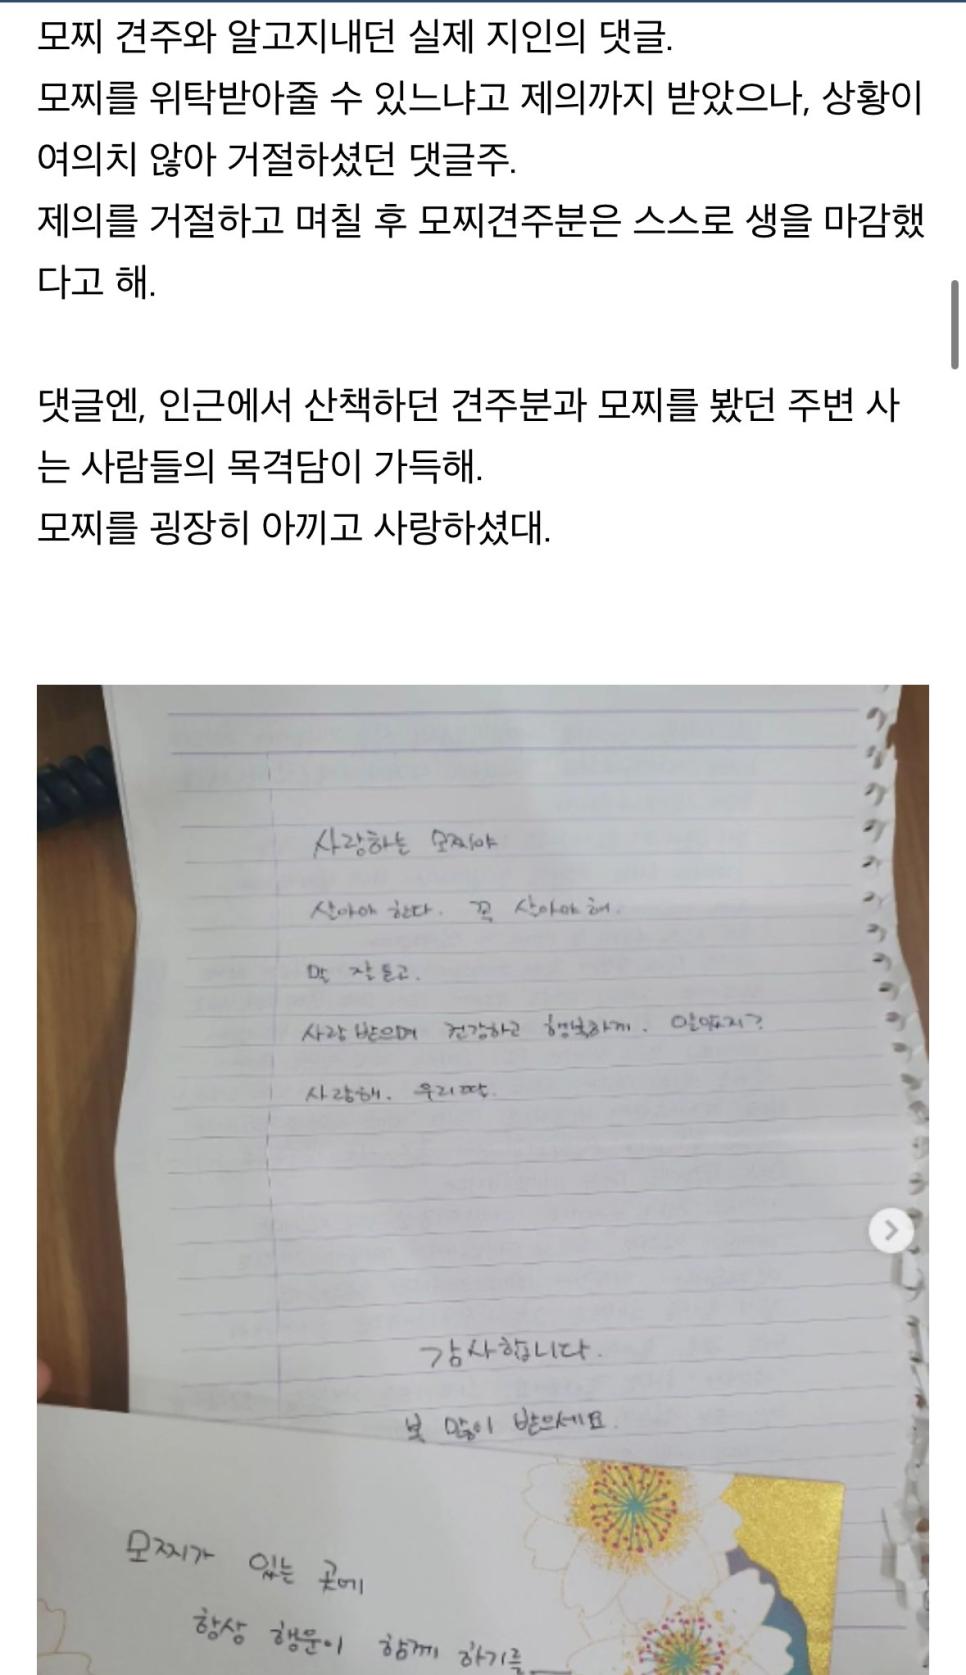 모찌 견주와 알고지내던 실제 지인의 댓글.
모찌를 위탁받아줄 수 있느냐고 제의까지 받았으나, 상황이
여의치 않아 거절하셨던 댓글주.
제의를 거절하고 며칠 후 모찌견주분은 스스로 생을 마감했
다고 해.
댓글엔, 인근에서 산책하던 견주분과 모찌를 봤던 주변 사
는 사람들의 목격담이 가득해.
모찌를 굉장히 아끼고 사랑하셨대.
사랑하는 모찌야
살아야 한다. 꼭 살아야 해.
말 잘 듣고.
사랑 받으며 건강하고 행복하게. 알았지?
사랑해. 우리딸.
감사합니다.
복 많이 받으세요.
모찌가 있는 곳에
항상 행운이 함께 하기를